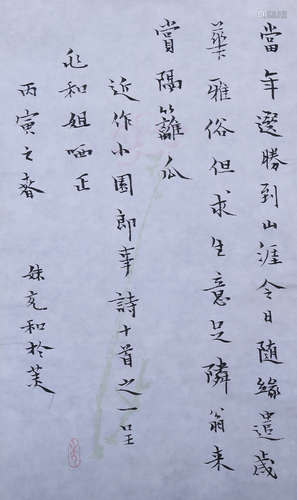 當年選勝到山涯今日随緣遣歲
華雅俗但求生意足隣翁来
賞隔籬瓜
近作小園即事詩十首之一呈
兆和姐哂正
丙寅之春
妹充和於美